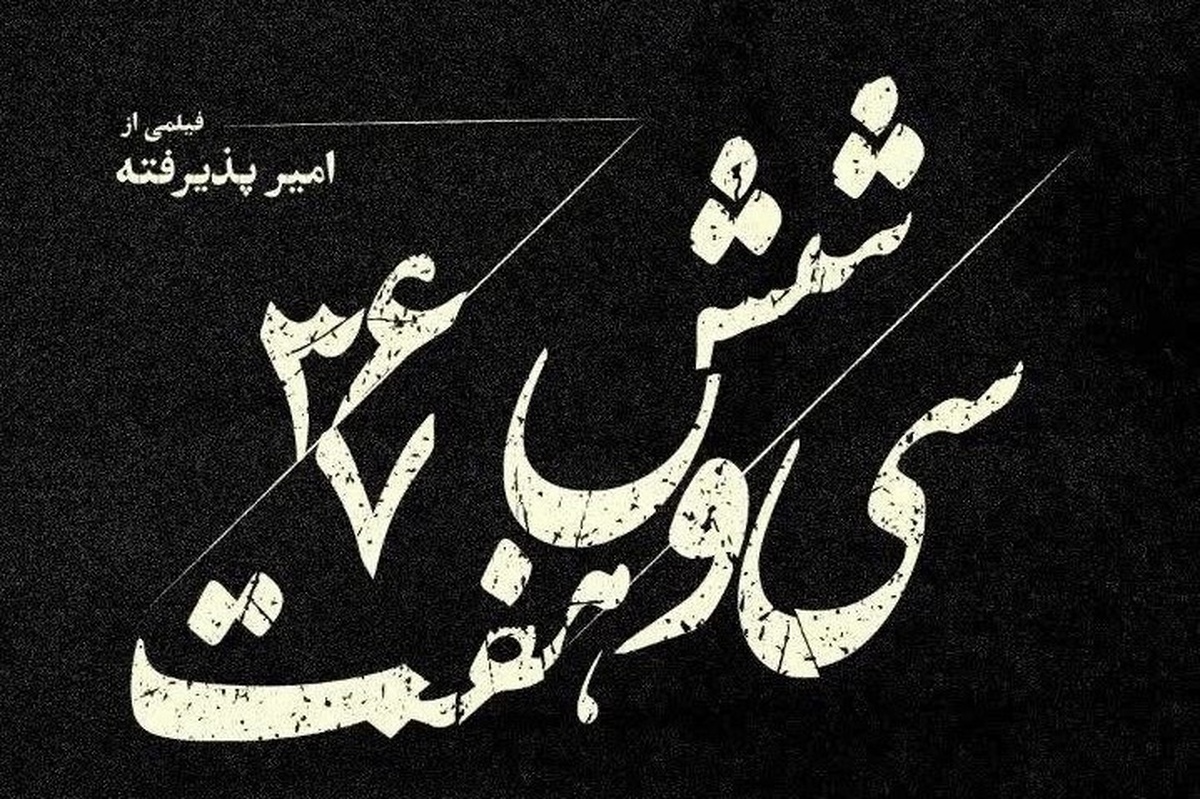 فیلمی از
امیر پذیرفته
۳۶
۷
سی و شش
هفت